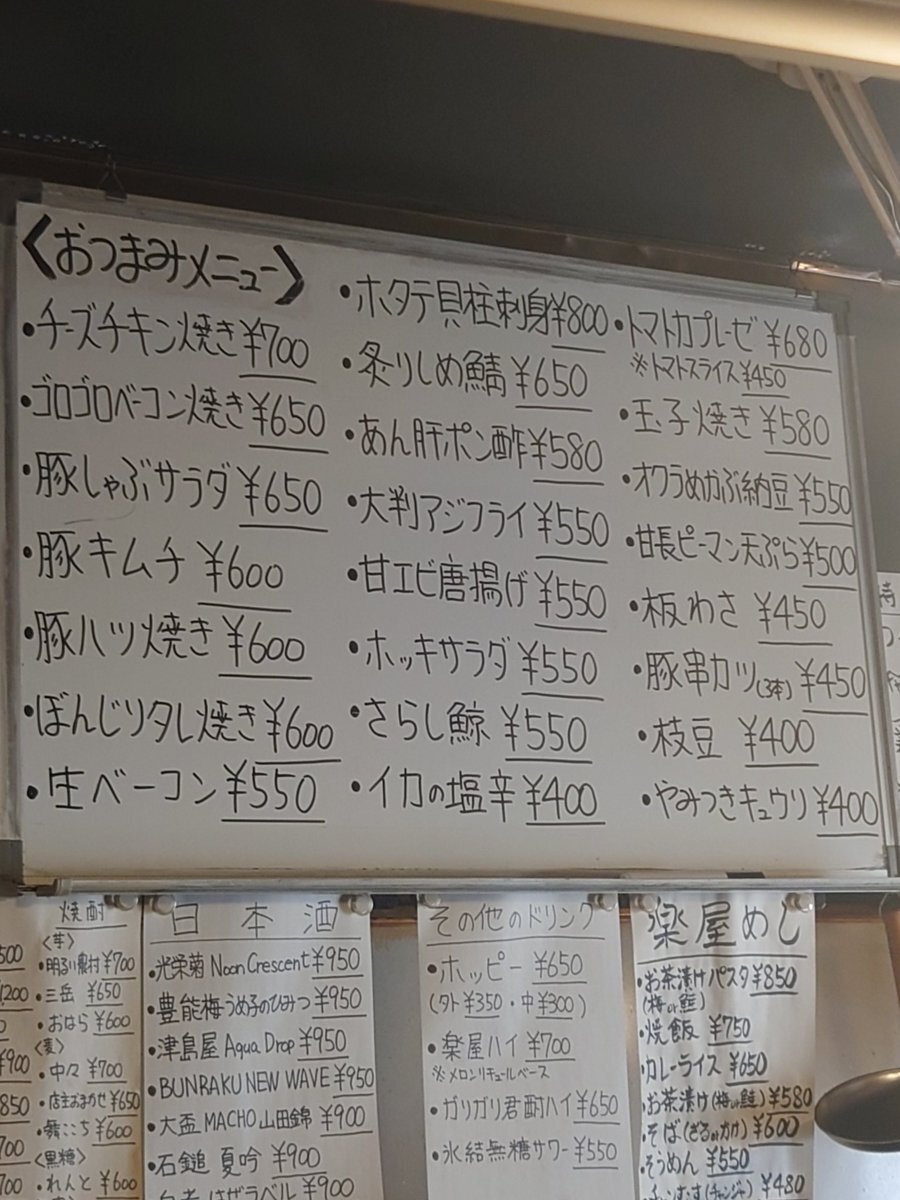 〈おつまみメニュー〉
・チーズチキン焼き ¥700
・ゴロゴロベーコン焼き ¥650
・豚しゃぶサラダ ¥650
・豚キムチ ¥600
・豚ハツ焼き ¥600
・ぼんじりタレ焼き ¥600
・生ベーコン ¥550
・ホタテ貝柱刺身 ¥800
・炙りしめ鯖 ¥650
・あん肝ポン酢 ¥580
・大判アジフライ ¥550
・甘エビ唐揚げ ¥550
・ホッキサラダ ¥550
・さらし鯨 ¥550
・イカの塩辛 ¥400
・トマトカプレーゼ ¥680
※トマトスライス ¥450
・玉子焼き ¥580
・オクラめかぶ納豆 ¥550
・甘長ピーマン天ぷら ¥500
・板わさ ¥450
・豚串カツ(3本) ¥450
・枝豆 ¥400
・やみつきキュウリ ¥400
焼酎
<芋>
・明るい農村 ¥700
・三岳 ¥650
・おはら ¥600
<麦>
・中々 ¥700
・店主おまかせ ¥650
・舞ここち ¥600
<黒糖>
・れんと ¥600
日本酒
・光栄菊 Noon Crescent ¥950
・豊能梅 うめ子のひみつ ¥950
・津島屋 Aqua Drop ¥950
・BUNRAKU NEW WAVE ¥950
・大盃 MACHO 山田錦 ¥900
・石鎚 夏吟 ¥900
¥900
その他のドリンク
・ホッピー ¥650
(外 ¥350・中 ¥300)
・楽屋ハイ ¥700
※メロンリキュールベース
・ガリガリ君酎ハイ ¥650
・氷結無糖サワー ¥550
楽屋めし
・お茶漬けパスタ ¥850
(梅or鮭)
・焼飯 ¥750
・カレーライス ¥650
・お茶漬け(梅or鮭) ¥580
・そば(ざるorかけ) ¥600
・そうめん ¥550
¥480